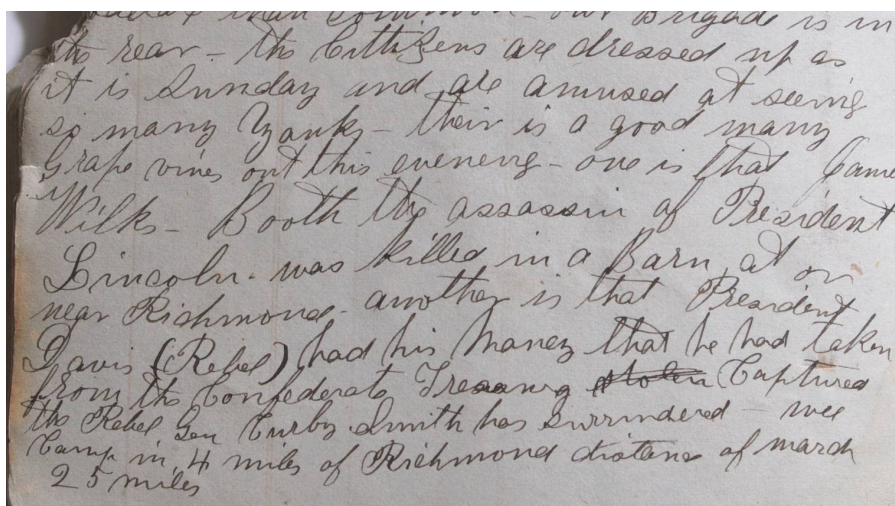 than common - our Brigade is in
the rear - the Cittizens are dressed up as
it is Sunday and are amused at seeing
so many Yanks - their is a good many
Grape vines out this eveneng - one is that Jame
Wilks - Booth the assassin of President
Lincoln - was killed in a Barn at or
near Richmond - another is that President
Davis (Rebel) had his Money that he had taken
from the Confederate Tresury stolen Captured
the Rebel Gen Curby Smith has Surrindered - wee
Camp in 4 miles of Richmond distanc of march
25 miles